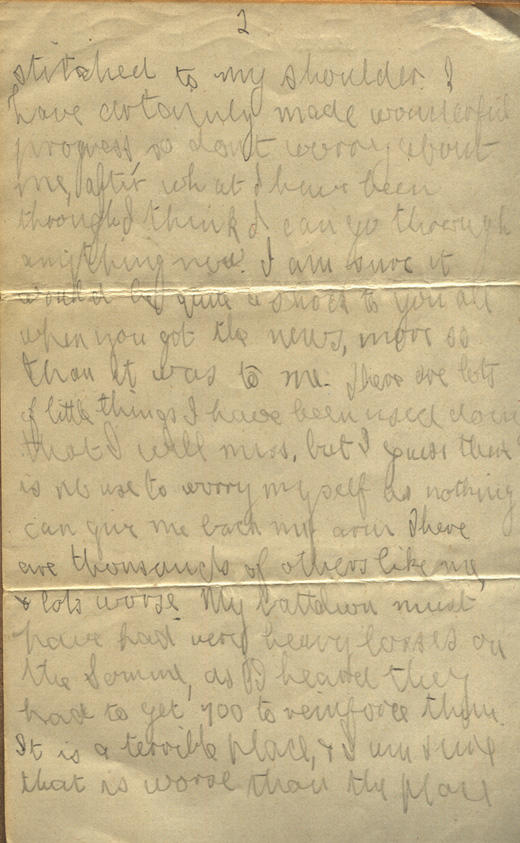 2
stitched to my shoulder. I
have certainly made wonderful
progress, so don't worry about
me, after what I have been
through I think I can go through
anything now. I am sure it
would be quite a shock to you all
when you got the news, more so
than it was to me. There are lots
of little things I have been used doing
that I will miss, but I guess there
is no use to worry myself as nothing
can give me back my arm. There
are thousands of others like me,
& lots worse. My battalion must
have had very heavy losses on
the Somme, as I heard they
had to get 700 to reinforce them.
It is a terrible place, & I am sure
that is worse than the place